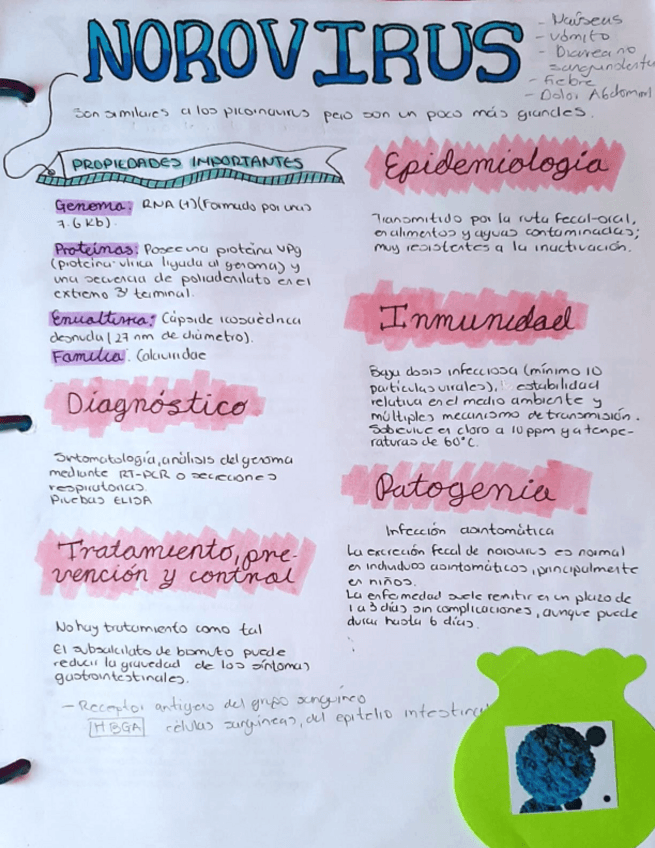 NOROVIRUS
- Naúseus
- vómito
- Diarea no
sanguinolenta
- Fiebre
- Dolor Abdominal
Son similares a los picornavirus pero son un poco más grandes.
PROPIEDADES IMPORTANTES
Genoma: RNA (+) (Formado por unas
7.6 Kb).
Proteínas: Posee una proteína VPg
(proteína vírica ligada al genoma) y
una secuencia de poliadenilato en el
extremo 3' terminal.
Envoltura: Cápside icosaédrica
desnuda (27 nm de diámetro).
Familia: Caliciviridae
Diagnóstico
Sintomatología, análisis del genoma
mediante RT-PCR o secreciones
respiratorias
Pruebas ELISA
Tratamiento, pre-
vención y control
No hay tratamiento como tal
El subsalicilato de bismuto puede
reducir la gravedad de los síntomas
gastrointestinales.
- Receptor antígeno del grupo sanguíneo
HBGA células sanguíneas, del epitelio intestinal
Epidemiología
Transmitido por la ruta fecal-oral,
en alimentos y aguas contaminadas;
muy resistentes a la inactivación.
Inmunidad
Baja dosis infecciosa (mínimo 10
partículas virales), estabilidad
relativa en el medio ambiente y
múltiples mecanismo de transmisión.
Sobrevive en cloro a 10 ppm y a tempe-
raturas de 60°C.
Patogenia
Infección asintomática
La excreción fecal de norovirus es normal
en individuos asintomáticos, principalmente
en niños.
La enfermedad suele remitir en un plazo de
1 a 3 días sin complicaciones, aunque puede
durar hasta 6 días.